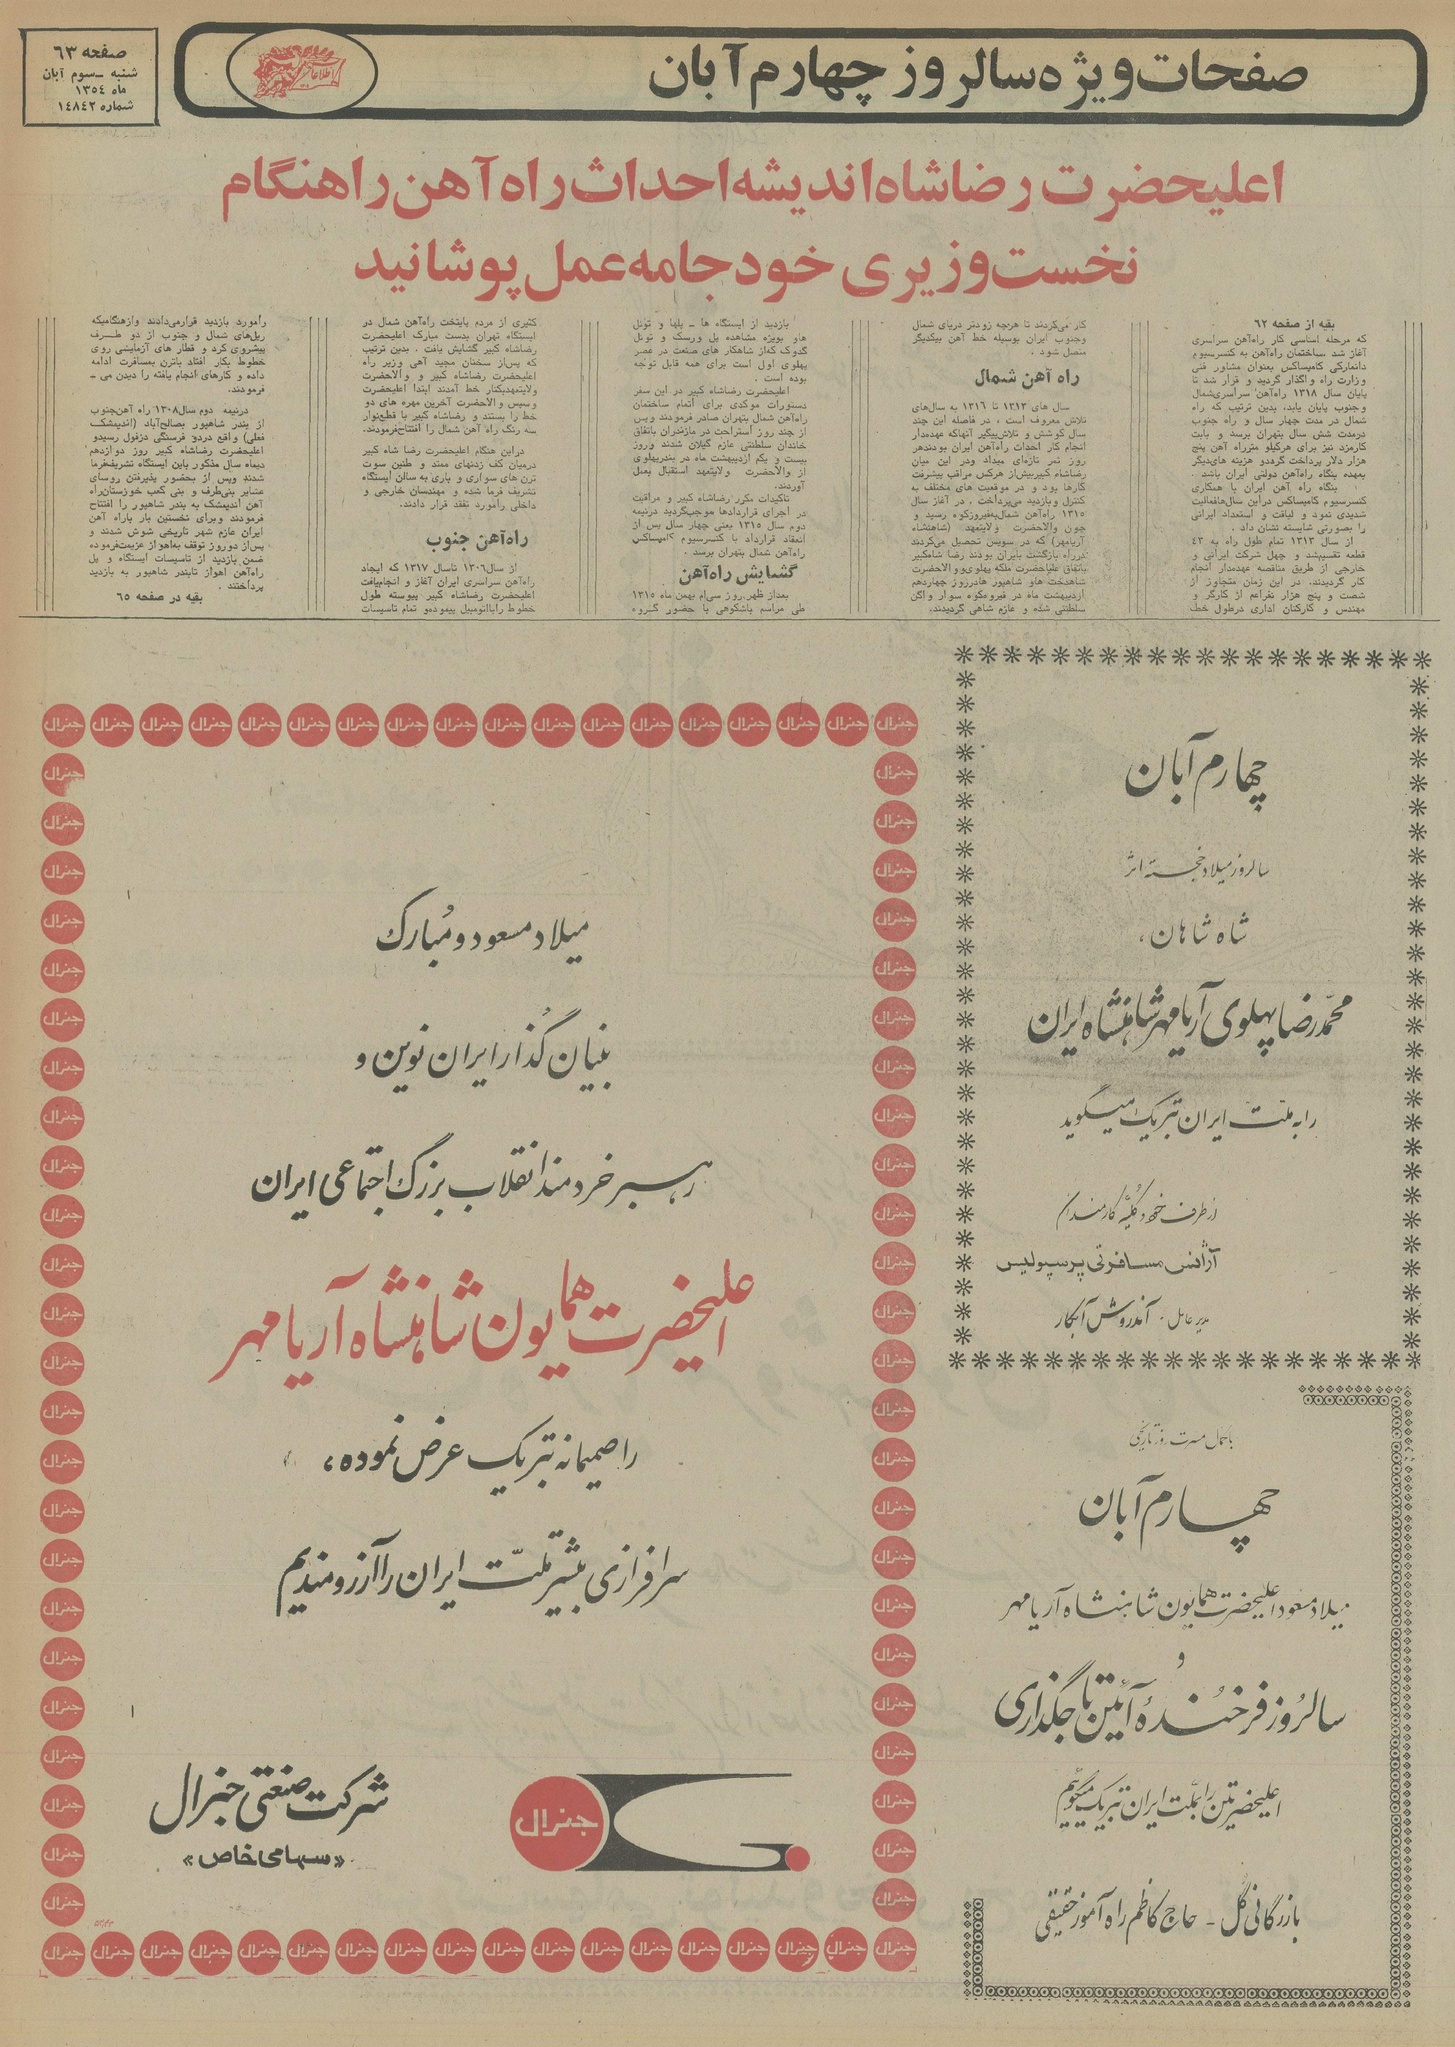 صفحه ٦٣
شنبه ـ سوم آبان
ماه ١٣٥٤
شماره ١٤٨٤٢
صفحات ویژه سالروز چهارم آبان
اطلاعات
اعلیحضرت رضاشاه اندیشه احداث راه آهن را هنگام
نخست وزیری خود جامه عمل پوشانید
بقیه از صفحه ٦٢
که مرحله اساسی کار راه‌آهن سراسری
آغاز شد ساختمان راه‌آهن به کنسرسیوم
دانمارکی کامپساکس بعنوان مشاور فنی
وزارت راه واگذار گردید و قرار شد تا
پایان سال ١٣١٨ راه‌آهن سراسری‌شمال
وجنوب پایان یابد، بدین ترتیب که راه
شمال در مدت چهار سال و راه جنوب
درمدت شش سال بتهران برسد و بابت
کارمزد نیز برای هرکیلو متر‌راه آهن پنج
هزار دلار پرداخت گردد‌و هزینه های‌دیگر
بعهده بنگاه راه‌آهن دولتی ایران باشد .
بنگاه راه آهن ایران با همکاری
کنسرسیوم کامپساکس دراین سال‌هافعالیت
شدیدی نمود و لیاقت و استعداد ایرانی
را بصورتی شایسته نشان داد .
از سال ١٣١٣ تمام طول راه به ٤٣
قطعه تقسیم‌شد و چهل شرکت ایرانی و
خارجی از طریق مناقصه عهده‌دار انجام
کار گردیدند. در این زمان متجاوز از
شصت و پنج هزار نفر‌اعم از کارگر و
مهندس و کارکنان اداری درطول خط
کار می‌کردند تا هرچه زودتر دریای شمال
وجنوب ایران بوسیله خط آهن بیکدیگر
متصل شود .
راه آهن شمال
سال های ١٣١٣ تا ١٣١٦ به سال‌های
تلاش معروف است ، در فاصله این چند
سال کوشش و تلاش‌پیگیر آنهاکه عهده‌دار
انجام کار احداث راه‌آهن ایران بودندهر
روز ثمر تازه‌ای میداد ودر این میان
رضاشاه کبیربیش‌از هرکس مراقب پیشرفت
کارها بود و در موقعیت های مختلف به
کنترل وبازدید می‌پرداخت . در آغاز سال
١٣١٥ راه‌آهن شمال‌به‌فیروزکوه رسید و
چون والاحضرت ولایتعهد (شاهنشاه
آریامهر) که در سویس تحصیل می‌کردند
درراه بازگشت بایران بودند رضا شاه‌کبیر
باتفاق علیاحضرت ملکه پهلوی‌و‌والاحضرت
شاهدخت ها‌و شاهپور هادرروز چهاردهم
اردیبهشت ماه در فیروزکوه سوار واگن
سلطنتی شده و عازم شاهی گردیدند.
بازدید از ایستگاه ها ـ پلها و تونل
ها‌و بویژه مشاهده پل ورسک و تونل
گدوک که‌از شاهکار های صنعت در عصر
پهلوی اول است برای همه قابل توجه
بوده است .
اعلیحضرت رضاشاه کبیر در این سفر
دستورات موکدی برای اتمام ساختمان
راه‌آهن شمال بتهران صادر فرمودند وپس
از چند روز استراحت در مازندران باتفاق
خاندان سلطنتی عازم گیلان شدند وروز
بیست و یکم اردیبهشت ماه در بندرپهلوی
از والاحضرت ولایتعهد استقبال بعمل
آوردند.
تاکیدات مکرر رضاشاه کبیر و مراقبت
در اجرای قراردادها موجب‌گردید درنیمه
دوم سال ١٣١٥ یعنی چهار سال پس از
انعقاد قرارداد با کنسرسیوم کامپساکس
راه‌آهن شمال بتهران برسد .
گشایش راه‌آهن
بعداز ظهر روز سی‌ام بهمن ماه ١٣١٥
طی مراسم باشکوهی با حضور گروه
کثیری از مردم پایتخت راه‌آهن شمال در
ایستگاه تهران بدست مبارک اعلیحضرت
رضاشاه کبیر گشایش یافت . بدین ترتیب
که پس‌از سخنان مجید آهی وزیر راه
اعلیحضرت رضاشاه کبیر و والاحضرت
ولایتعهدبکنار خط آمدند ابتدا اعلیحضرت
وسپس والاحضرت آخرین مهره های دو
خط را بستند و رضاشاه کبیر با قطع‌نوار
سه رنگ راه آهن شمال را افتتاح‌فرمودند.
دراین هنگام اعلیحضرت رضا شاه کبیر
درمیان کف زدنهای ممتد و طنین سوت
ترن های سواری و باری به سالن ایستگاه
تشریف فرما شده و مهندسان خارجی و
داخلی رامورد تفقد قرار دادند.
راه‌آهن جنوب
از سال١٣٠٦ تاسال ١٣١٧ که ایجاد
راه‌آهن سراسری ایران آغاز و انجام‌یافت
اعلیحضرت رضاشاه کبیر پیوسته طول
خطوط رابااتومبیل پیموده‌و تمام تاسیسات
رامورد بازدید قرارمی‌دادند وازهنگامیکه
ریل‌های شمال و جنوب از دو طرف
پیشروی کرد و قطار های آزمایشی روی
خطوط بکار افتاد باترن بمسافرت ادامه
داده و کارهای انجام یافته را دیدن می ـ
فرمودند.
درنیمه دوم سال١٣٠٨ راه آهن‌جنوب
از بندر شاهپور بصالح‌آباد (اندیمشک
فعلی) واقع دردو فرسنگی دزفول رسیدو
اعلیحضرت رضاشاه کبیر روز دوازدهم
دیماه سال مذکور باین ایستگاه تشریف‌فرما
شدند وپس از بحضور پذیرفتن روسای
عشایر بنی‌طرف و بنی کعب خوزستان‌راه
آهن اندیمشک به بندر شاهپور را افتتاح
فرمودند وبرای نخستین بار باراه آهن
ایران عازم شهر تاریخی شوش شدند و
پس‌از دوروز توقف به‌اهواز عزیمت‌فرموده
ضمن بازدید از تاسیسات ایستگاه و پل
راه‌آهن اهواز تابندر شاهپور به بازدید
پرداختند .
بقیه در صفحه ٦٥
چهارم آبان
سالروز میلاد خجسته اثر
شاه شاهان،
محمّدرضا پهلوی آریامهر شاهنشاه ایران
را به ملّت ایران تبریک میگوید
از طرف خود و کلیّه کارمندان
آژانس مسافرتی پرسپولیس
مدیر عامل ـ آندروش آبکار
میلاد مسعود و مُبارک
بنیان گُذار ایران نوین و
رهبر خردمند انقلاب بزرگ اجتماعی ایران
اعلیحضرت همایون شاهنشاه آریامهر
را صمیمانه تبریک عرض نموده،
سرافرازی بیشتر ملّت ایران را آرزومندیم
شرکت صنعتی جنرال
«سهامی خاص»
جنرال
با کمال مسرت روز تاریخی
چهارم آبان
میلاد مسعود اعلیحضرت همایون شاهنشاه آریامهر
و
سالروز فرخندهٔ آئین تاجگذاری
اعلیحضرتین را بملّت ایران تبریک میگوئیم
بازرگانی گل ـ حاج کاظم راه آموز حقیقی